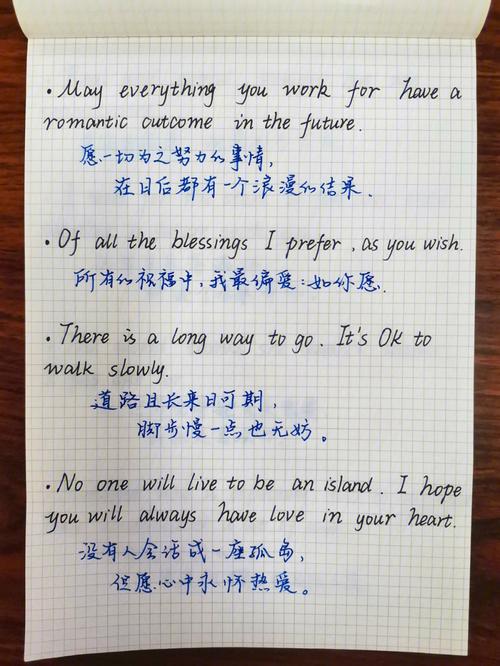 · May everything you work for have a
romantic outcome in the future.
愿一切为之努力的事情,
在日后都有一个浪漫的结果.
· Of all the blessings I prefer , as you wish.
所有的祝福中,我最偏爱:如你愿.
· There is a long way to go. It's OK to
walk slowly.
道路且长来日可期,
脚步慢一点也无妨。
· No one will live to be an island. I hope
you will always have love in your heart.
没有人会活成一座孤岛,
但愿心中永怀热爱。